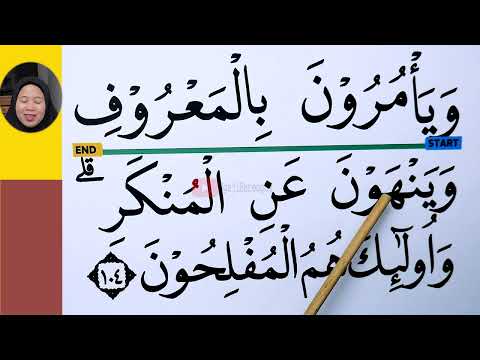 وَيَأْمُرُوْنَ بِالْمَعْرُوْفِ
END START
وَيَنْهَوْنَ عَنِ الْمُنْكَرِ ۗ
وَاُولٰۤىِٕكَ هُمُ الْمُفْلِحُوْنَ ١٠٤